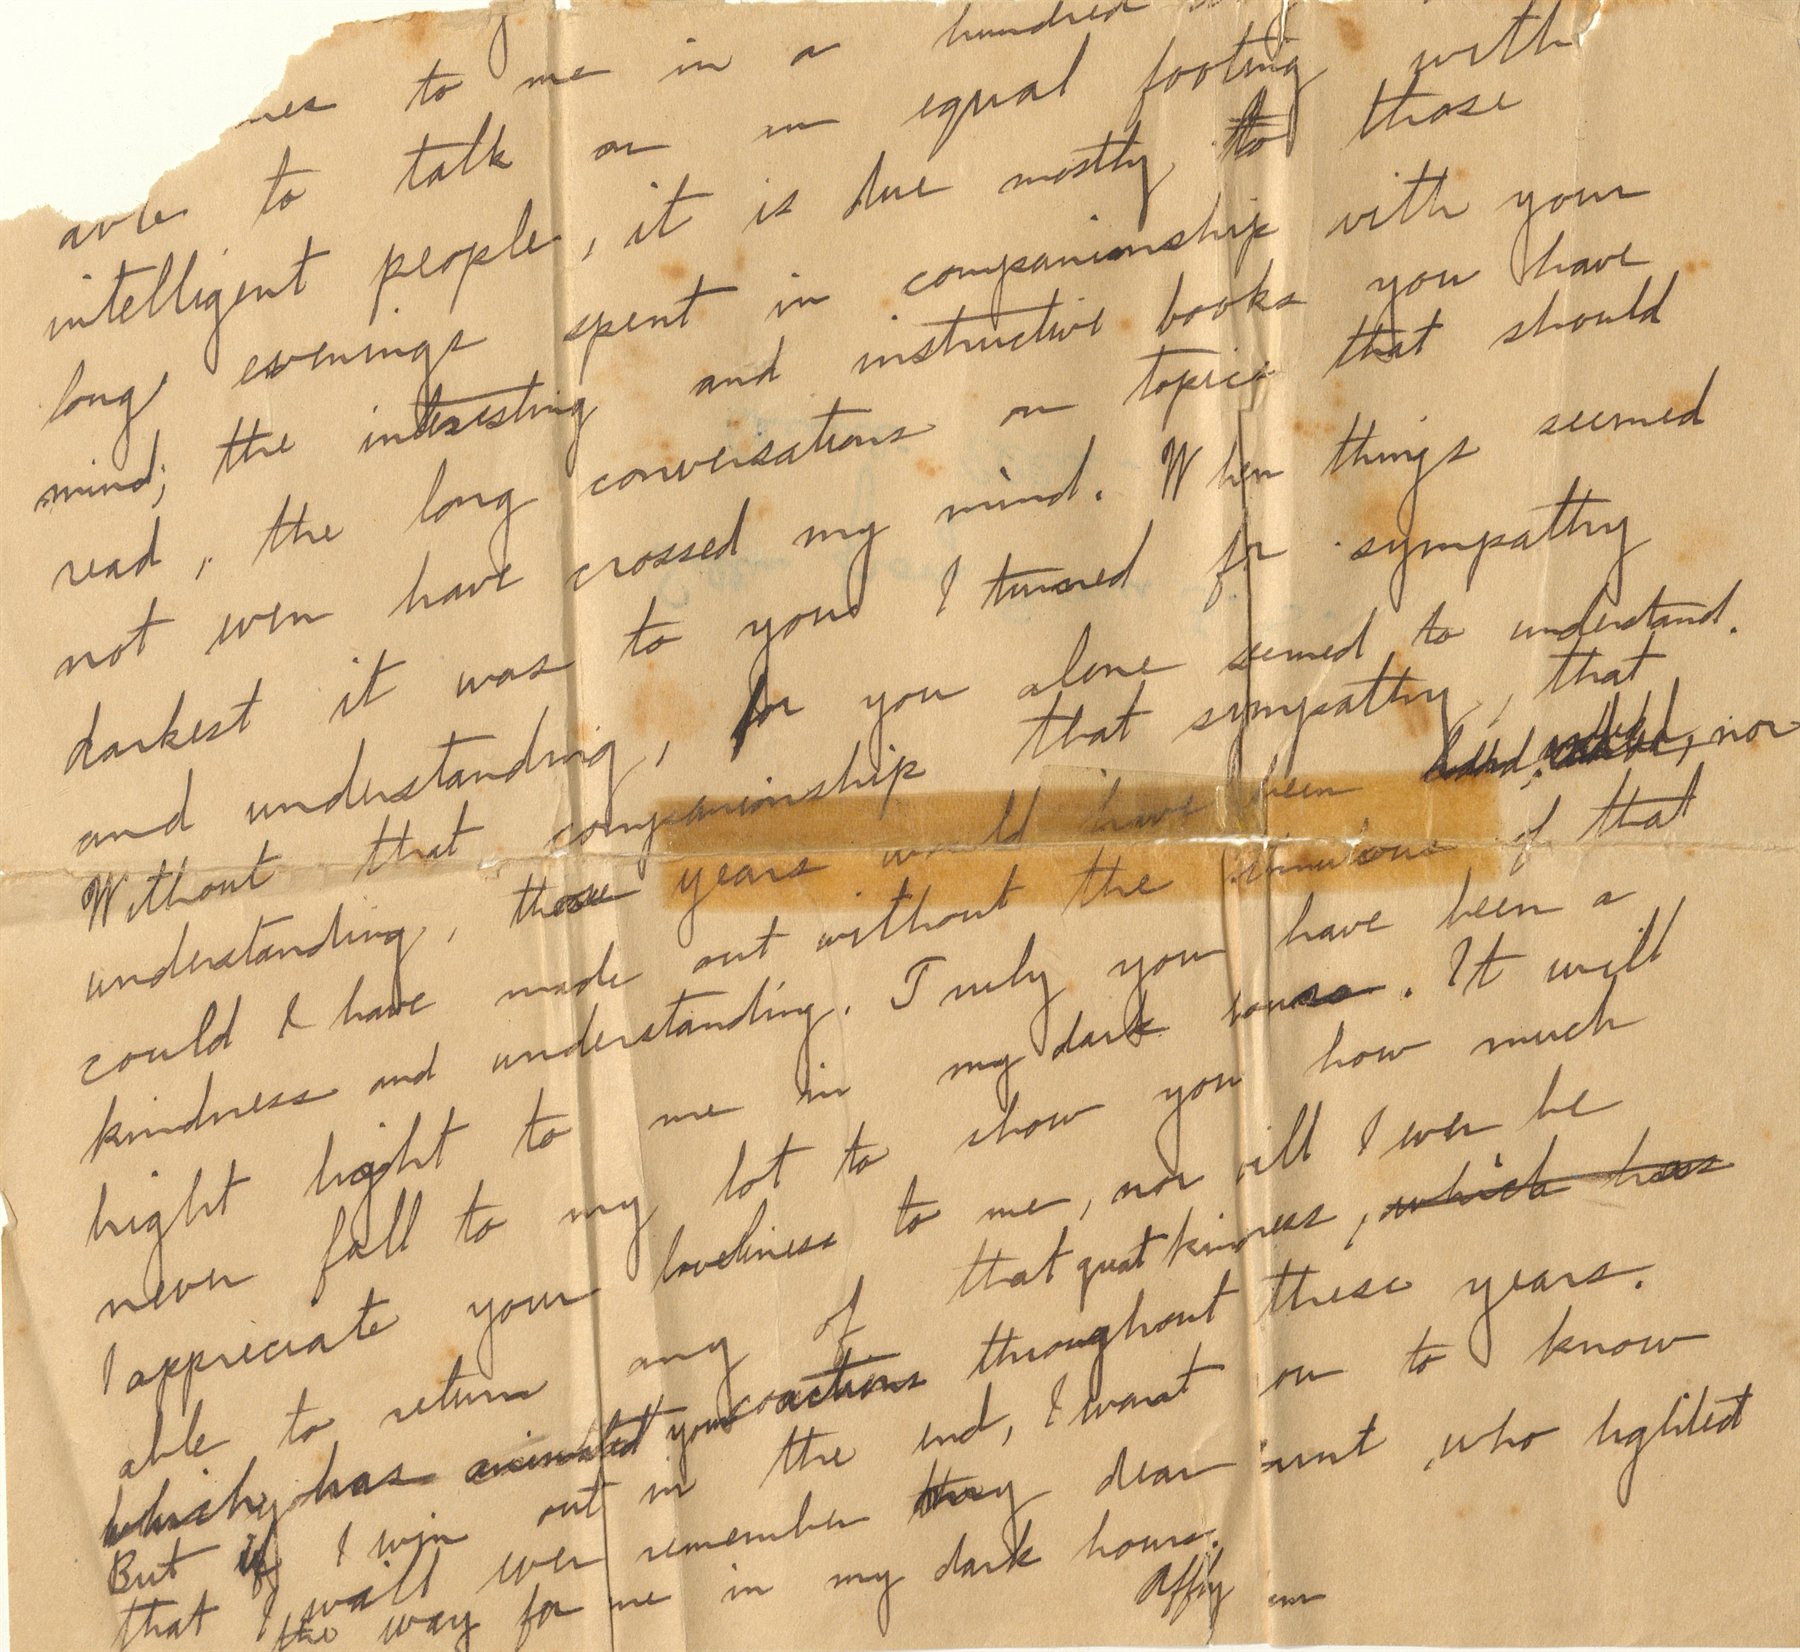 to me in a hundred
able to talk on an equal footing with
intelligent people, it is due mostly to those
long evenings spent in companionship with your
mind; the interesting and instructive books you have
read, the long conversations on topics that should
not even have crossed my mind. When things seemed
darkest it was to you I turned for sympathy
and understanding, for you alone seemed to understand.
Without that companionship that sympathy, that
understanding, those years would have been nor
could I have made out without the stimulous of that
kindness and understanding. Truly you have been a
bright light to me in my dark hours. It will
never fall to my lot to show you how much
I appreciate your loveliness to me, nor will I ever be
able to return any of that great kindness, which has
which has animated your actions throughout these years.
But if I win out in the end, I want you to know
that I will ever remember my dear aunt, who lighted
the way for me in my dark hours.